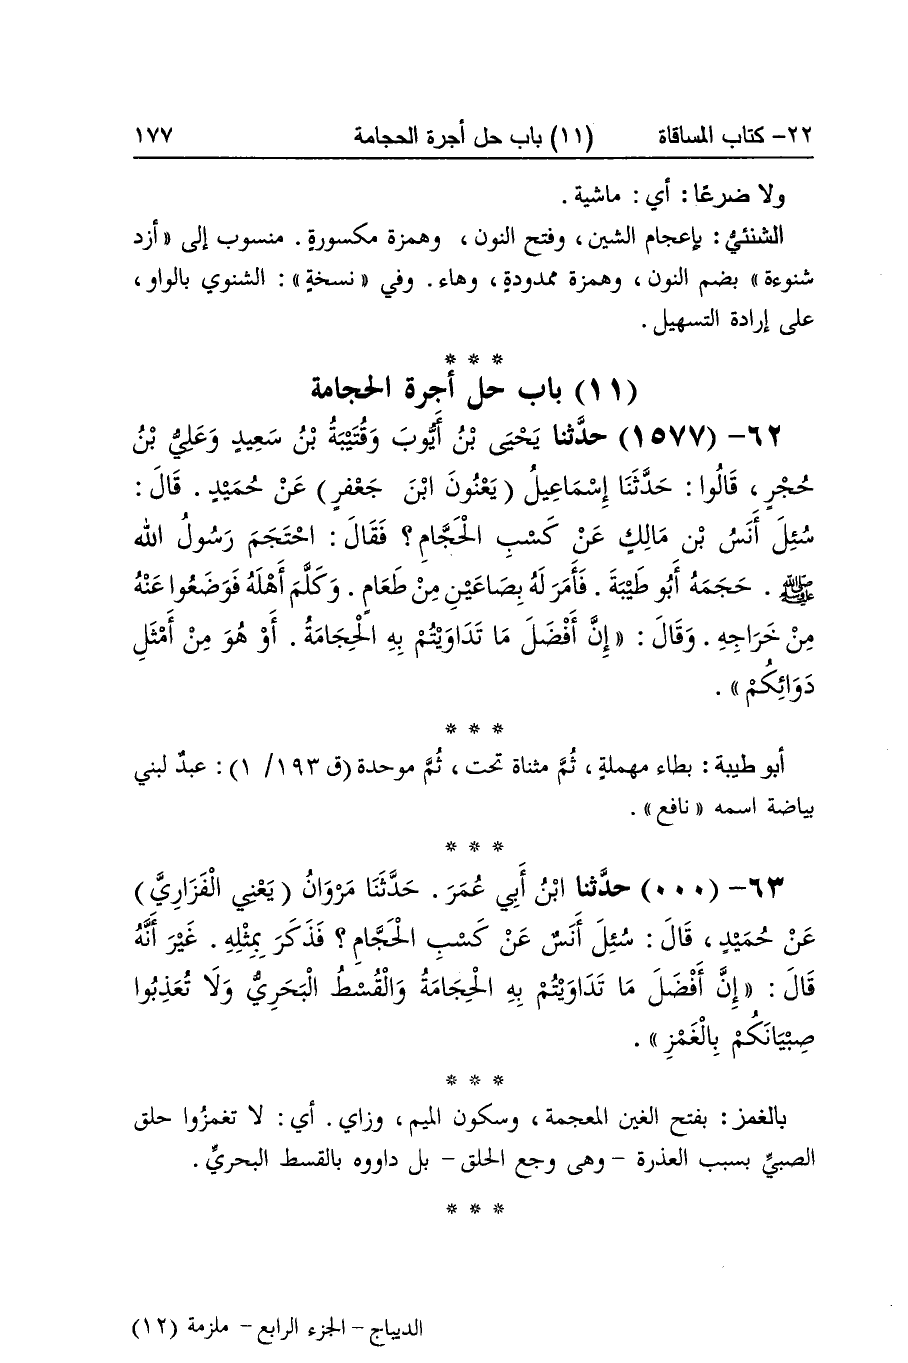 ٢٢- كتاب المساقاة (١١) باب حل أجرة الحجامة ١٧٧
ولا ضرعًا : أي : ماشية .
الشنئيُّ : بإعجام الشين ، وفتح النون ، وهمزة مكسورةٍ . منسوب إلى « أزد
شنوءة » بضم النون ، وهمزة ممدودةٍ ، وهاء . وفي « نسخةٍ » : الشنوي بالواو ،
على إرادة التسهيل .
* * *
(١١) باب حل أجرة الحجامة
٦٢- (١٥٧٧) حدَّثنا يَحْيَى بْنُ أَيُّوبَ وَقُتَيْبَةُ بْنُ سَعِيدٍ وَعَلِيُّ بْنُ
حُجْرٍ ، قَالُوا : حَدَّثَنَا إِسْمَاعِيلُ ( يَعْنُونَ ابْنَ جَعْفرٍ ) عَنْ حُمَيْدٍ . قَالَ :
سُئِلَ أَنَسُ بْن مَالِكٍ عَنْ كَسْبِ الْحَجَّامِ ؟ فَقَالَ : احْتَجَمَ رَسُولُ الله
ﷺ . حَجَمَهُ أَبُو طَيْبَةَ . فَأَمَرَ لَهُ بِصَاعَيْنِ مِنْ طَعَامٍ . وَكَلَّمَ أَهْلَهُ فَوَضَعُوا عَنْهُ
مِنْ خَرَاجِهِ . وَقَالَ : « إِنَّ أَفْضَلَ مَا تَدَاوَيْتُمْ بِهِ الْحِجَامَةُ . أَوْ هُوَ مِنْ أَمْثَلِ
دَوَائِكُمْ » .
* * *
أبو طيبة : بطاء مهملةٍ ، ثُمَّ مثناة تحت ، ثُمَّ موحدة (ق ١٩٣/ ١) : عبدٌ لبني
بياضة اسمه « نافع » .
* * *
٦٣- (٠٠٠) حدَّثنا ابْنُ أَبِي عُمَرَ . حَدَّثَنَا مَرْوَانُ ( يَعْنِي الْفَزَارِيَّ )
عَنْ حُمَيْدٍ ، قَالَ : سُئِلَ أَنَسٌ عَنْ كَسْبِ الْحَجَّامِ ؟ فَذَكَرَ بِمِثْلِهِ . غَيْرَ أَنَّهُ
قَالَ : « إِنَّ أَفْضَلَ مَا تَدَاوَيْتُمْ بِهِ الْحِجَامَةُ وَالْقُسْطُ الْبَحَرِيُّ وَلَا تُعَذِبُوا
صِبْيَانَكُمْ بِالْغَمْزِ » .
* * *
بالغمز : بفتح الغين المعجمة ، وسكون الميم ، وزاي . أي : لا تغمزُوا حلق
الصبيِّ بسبب العذرة - وهى وجع الحلق - بل داووه بالقسط البحريِّ .
* * *
الديباج - الجزء الرابع - ملزمة (١٢)